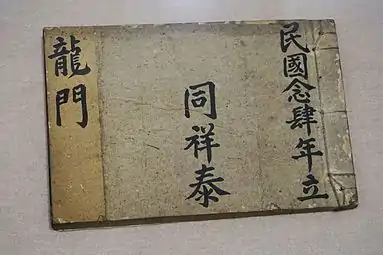 民國念肆年立
同祥泰
龍門